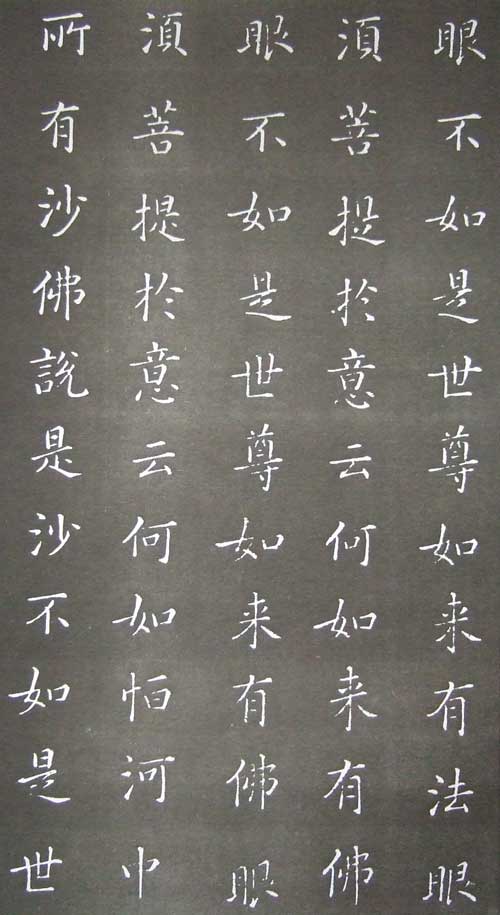 眼不如是世尊如来有法眼
須菩提於意云何如来有佛
眼不如是世尊如来有佛眼
須菩提於意云何如怕河中
所有沙佛說是沙不如是世